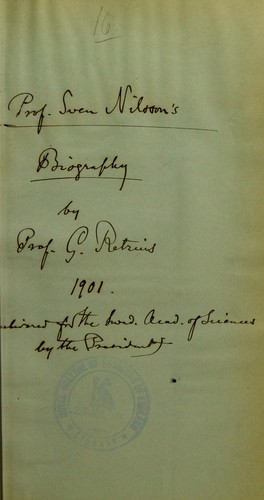 16
Prof. Sven Nilsson's
Biography
by
Prof. G. Retzius
1901.
for the Swed. Acad. of Sciences
by the President